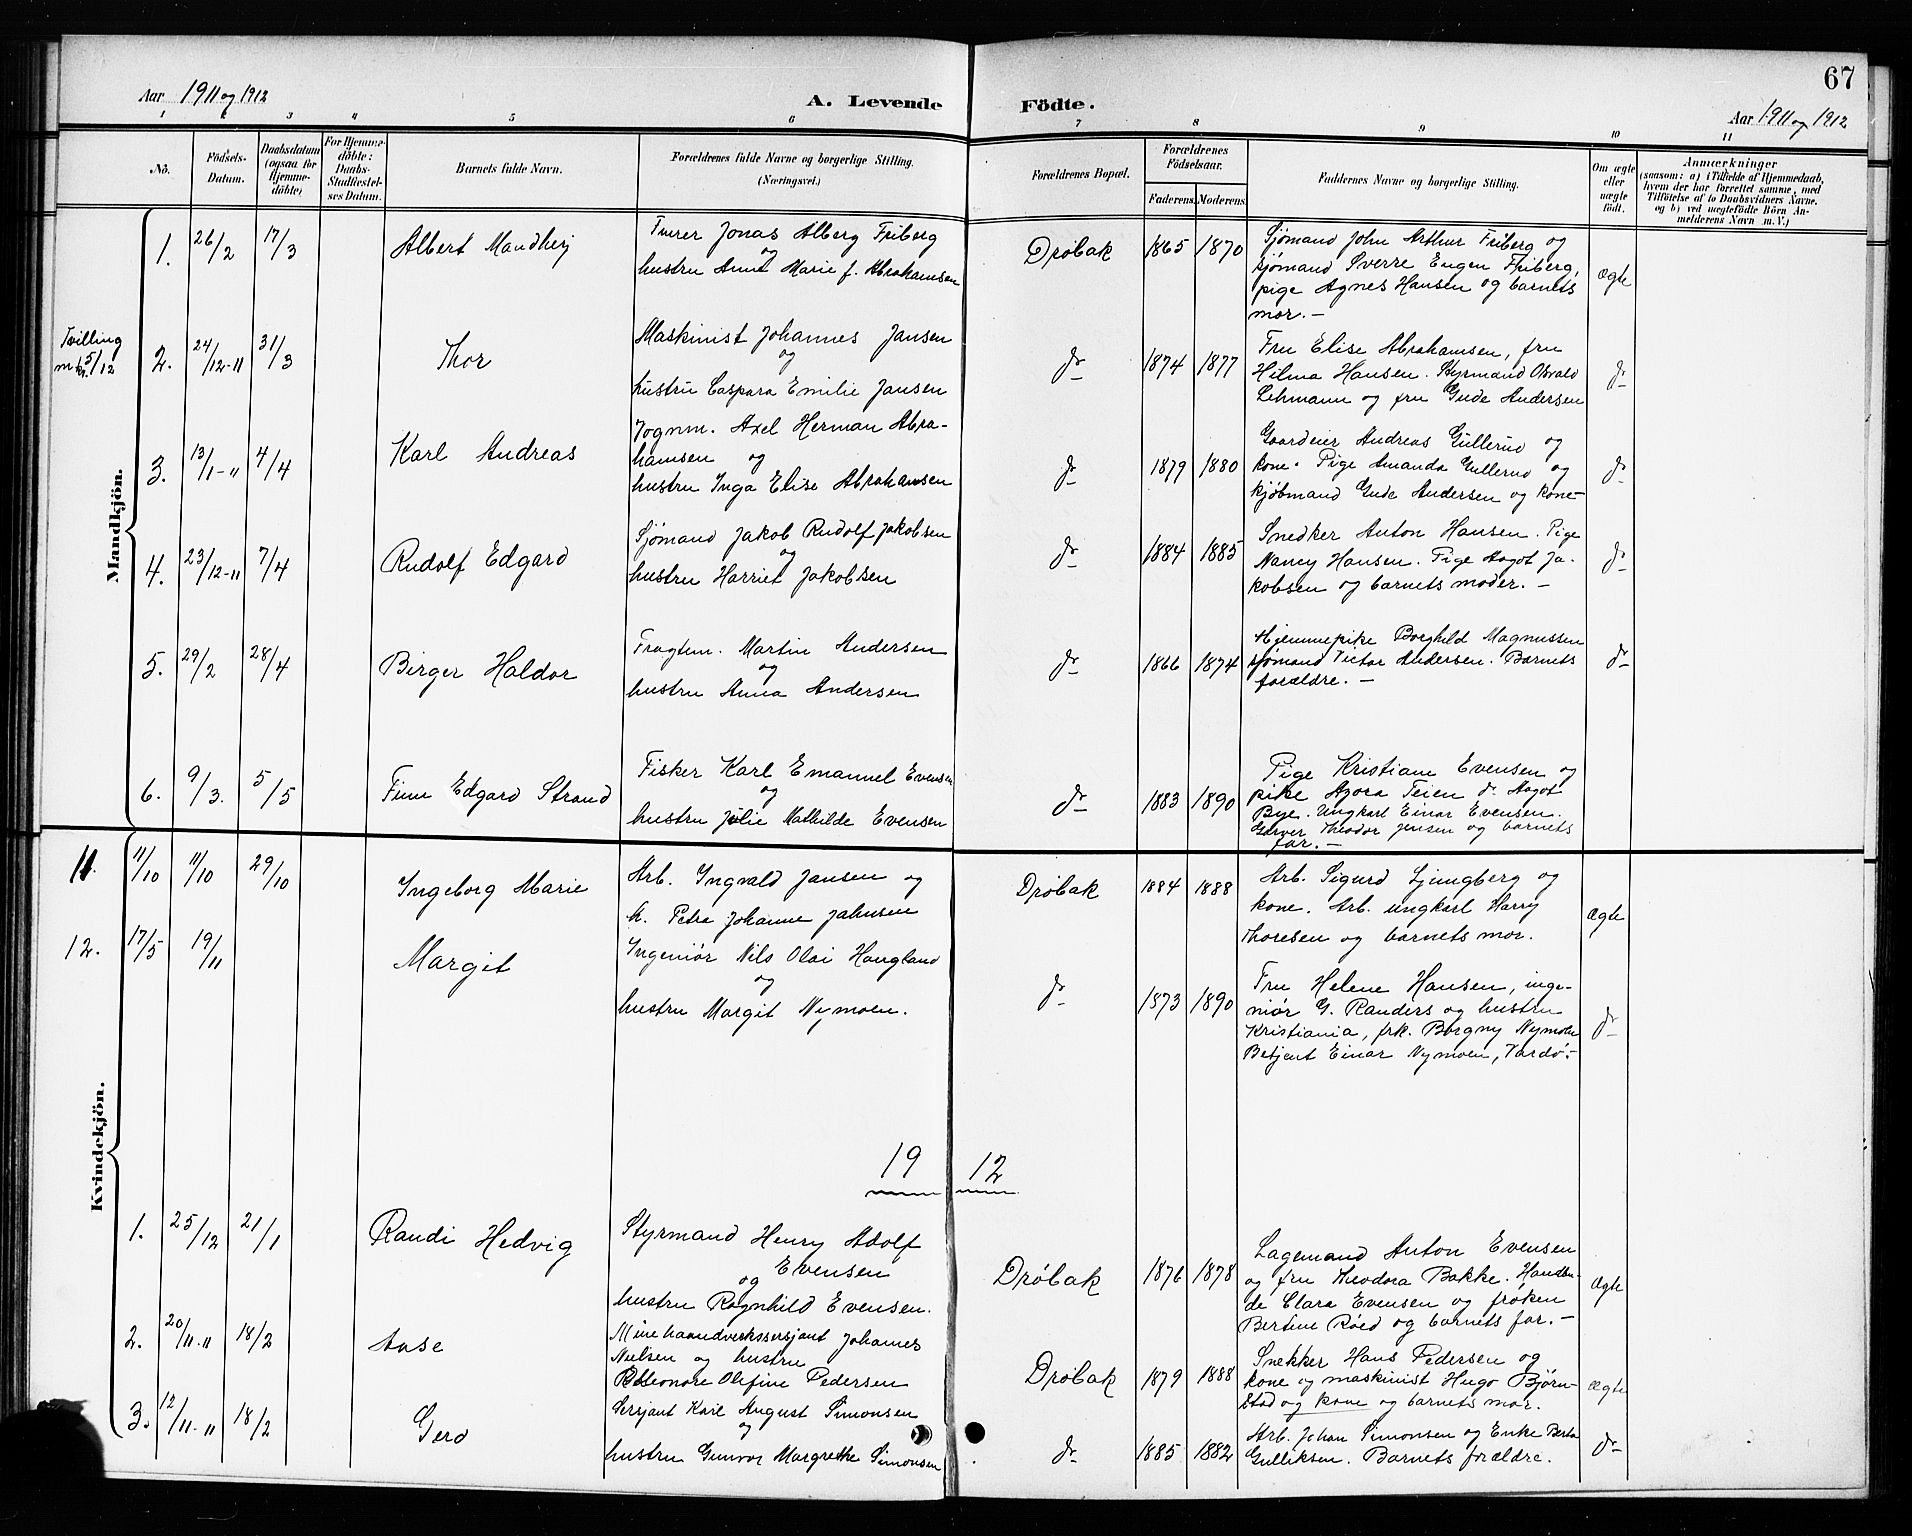 67
Aar 1911 og 1912
A. Levende Födte.
Aar 1911 og 1912
1 2 3 4 5 6 7 8 9 10 11
No. Födsels-Datum. Daabsdatum (ogsaa for Hjemmedöbte) For Hjemmedöbte: Daabs-Stadfæstelses Datum. Barnets fulde Navn. Forældrenes fulde Navne og borgerlige Stilling. (Næringsvei.) Forældrenes Bopæl. Forældrenes Födselsaar. Faderens. Moderens. Faddernes Navne og borgerlige Stilling. Om ægte eller uægte födt. Anmærkninger
(saasom: a) i Tilfælde af Hjemmedaab,
hvem der har forrettet samme, med
Tilföielse af to Daabsvidners Navne.
og b) ved uægtefödte Börn Anmelderens Navn m. V.)
Mandkjön.
1. 26/2 17/3 Albert Mandhej
Furer Jonas Alberg Friberg
og
hustru Anna Marie f. Abrahamsen
Drøbak 1865 1870
Sjømand John Arthur Friberg og
sjømand Sverre Eugen Friberg,
pige Agnes Hansen og barnets
mor. –
ægte
Tvilling
m. kr. 5/12
2. 24/12-11 31/3 Thor
Maskinist Johannes Jansen
og
hustru Caspara Emilie Jansen
do 1874 1877
Fru Elise Abrahamsen, fru
Hilma Hansen. Styrmand Osvald
Lehmann og fru Gude Andersen
do
3. 13/1-11 4/4 Karl Andreas
Tognm. Axel Herman Abra-
hamsen og
hustru Inga Elise Abrahamsen
do 1879 1880
Gaardeier Andreas Gullerud og
kone. Pige Amanda Gullerud og
kjøbmand Gude Andersen og kone –
do
4. 23/12-11 7/4 Rudolf Edgard
Sjømand Jakob Rudolf Jakobsen
og
hustru Harriet Jakobsen
do 1884 1885
Snedker Anton Hansen. Pige
Nancy Hansen. Pige Aagot Ja-
kobsen og barnets moder. –
do
5. 29/2 28/4 Birger Haldor
Fragtem. Martin Andersen
og
hustru Anna Andersen
do 1866 1874
Hjemmepike Borghild Magnussen
sjømand Victor Andersen. Barnets
forældre. –
do
6. 9/3. 5/5 Finn Edgard Strand
Fisker Karl Emanuel Evensen
og
hustru Julie Mathilde Evensen
do 1883 1890
Pige Kristiane Evensen og
pike Agora Teien do. Aagot
Bye. Ungkarl Einar Evensen.
Garver Theodor Jensen og barnets
far. –
Kvindekjön.
11. 11/10 11/10 29/10 Ingeborg Marie
Arb. Ingvald Jansen og
h. Petra Johanne Jahnsen
Drøbak 1884 1888
Arb. Sigurd Ljungberg og
kone. Arb. ungkarl Harry
Thoresen og barnets mor.
ægte
12. 17/5 19/11 Margit
Ingeniør Nils Olai Haugland
og
hustru Margit Nymoen.
do 1873 1890
Fru Helene Hansen, inge-
niør G. Randers og hustru
Kristiania, frk. Borgny Nymoen
Betjent Einar Nymoen, Vardø. –
do
19 12
1. 25/12 21/1 Randi Hedvig
Styrmand Henry Adolf
Evensen
og
hustru Ragnhild Evensen.
Drøbak 1876 1878
Lagemand Anton Evensen
og fru Theodora Bakke. Handlen-
de Clara Evensen og frøken
Bertine Røed og barnets far. –
ægte
2. 20/11-11 18/2 Aase
Minehaandverkssersjant Johannes
Nielsen og hustru
Eleonore Olefine Pedersen
Drøbak 1879 1888
Snekker Hans Pedersen og
kone og maskinist Hugo Bjørn-
stad og kone og barnets mor.
ægte
3. 12/11-11 18/2 Gerd
Sersjant Karl August Simonsen
og
hustru Gunvor Margrethe Simonsen
do 1885 1882
Arb. Johan Simonsen og Enke Berta
Gulliksen. Barnets forældre.
do